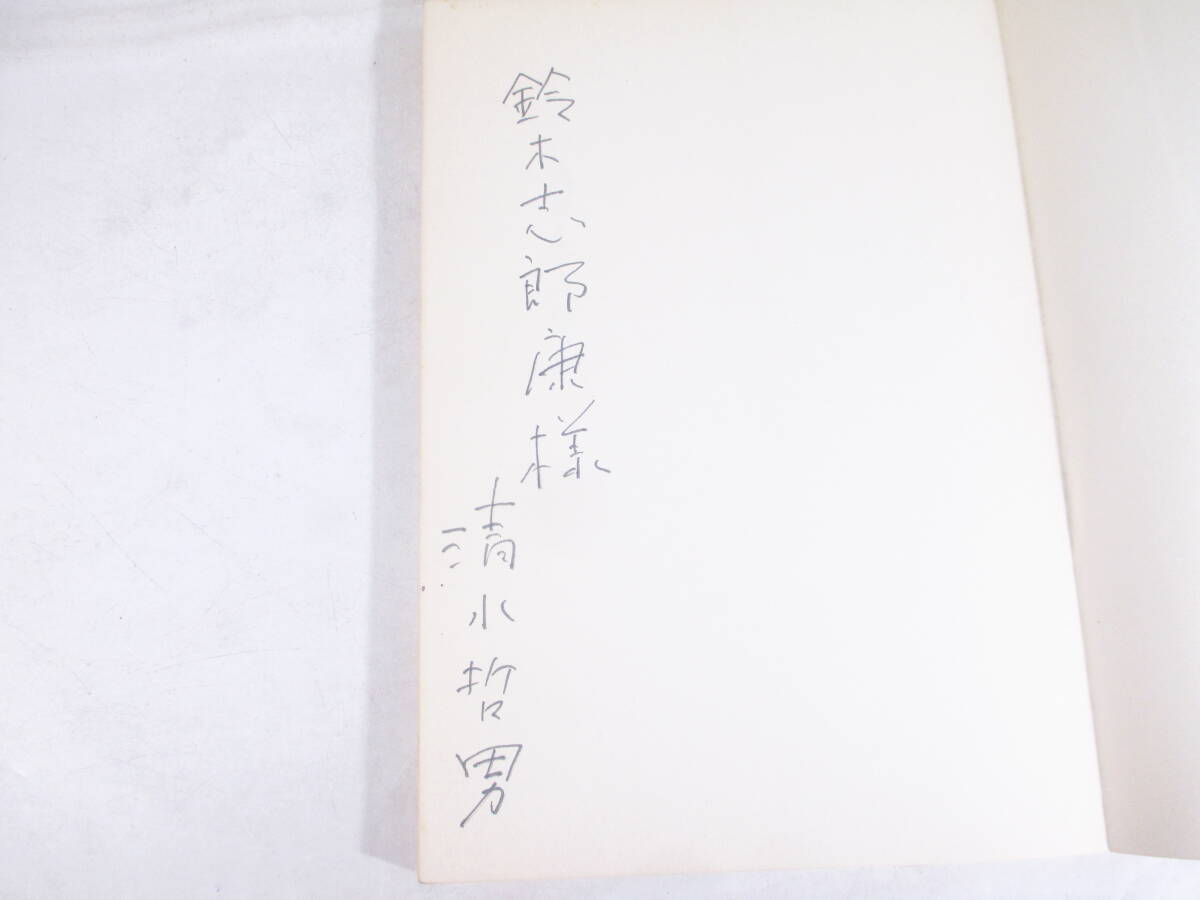 鈴木志郎康様
清水哲男